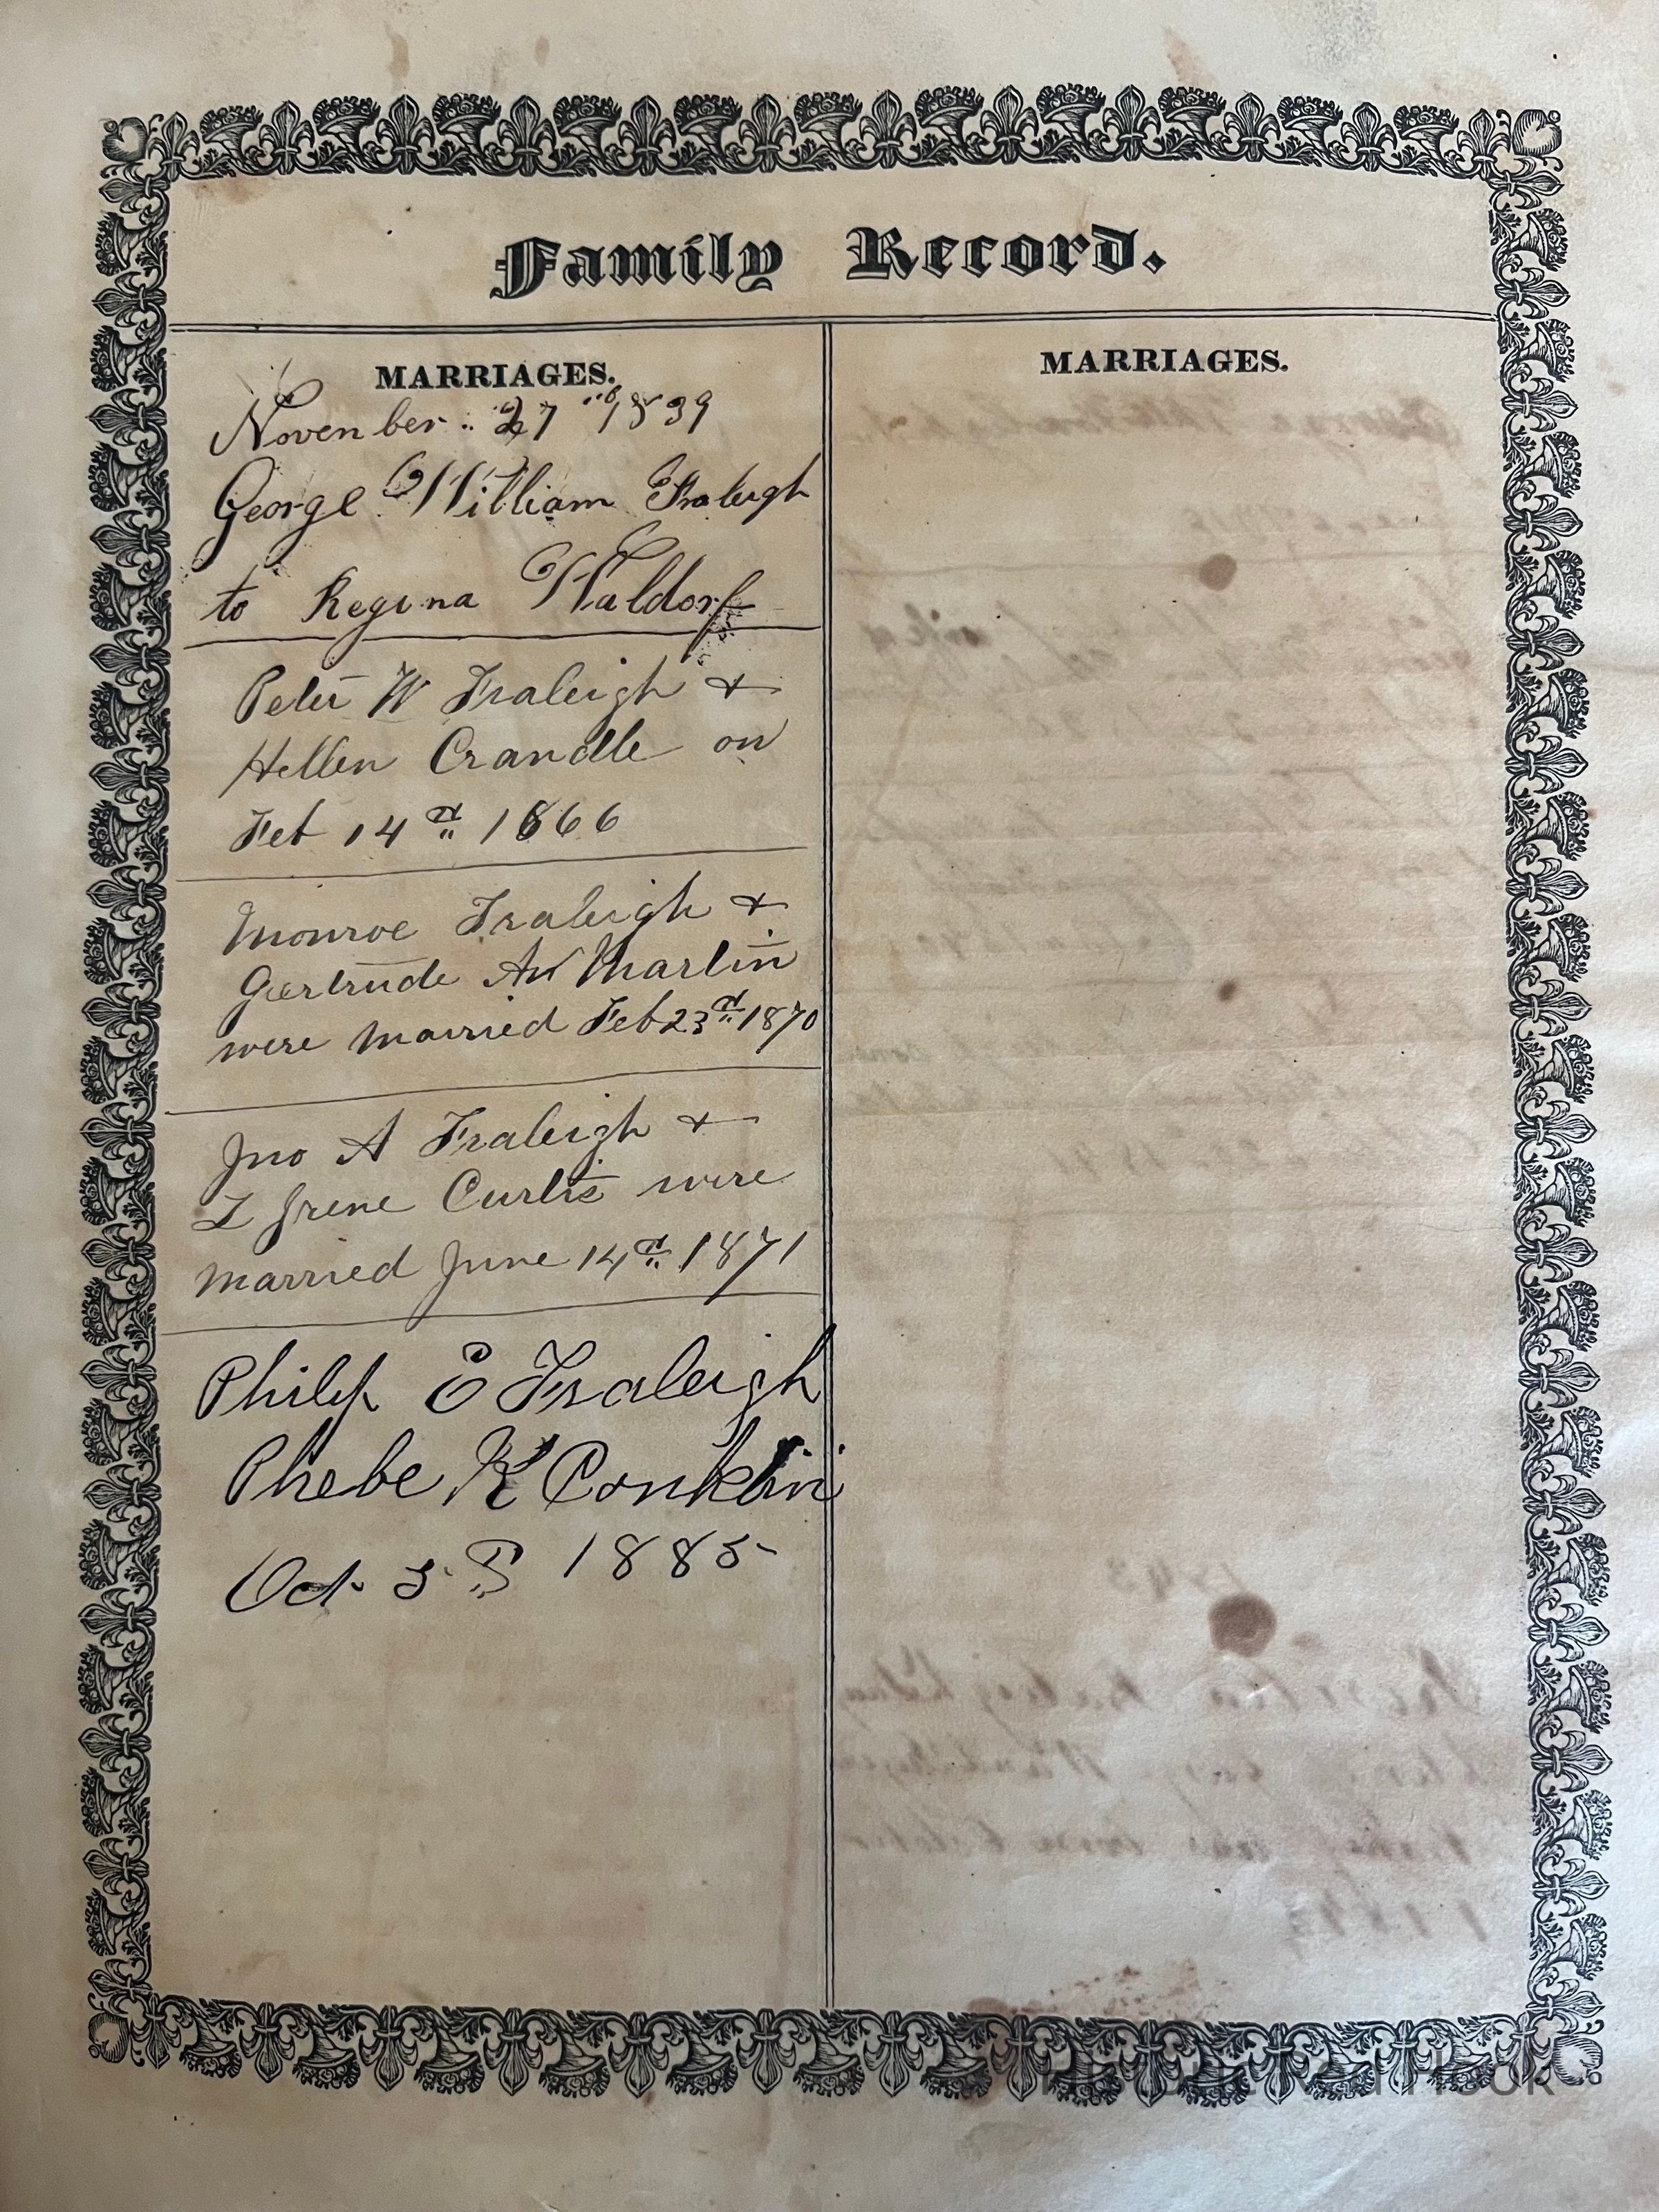 Family Record.
MARRIAGES.
November 27 1839
George William Fraleigh
to Regina Waldorf
Peter W Fraleigh &
Hellen Crandle on
Feb 14th 1866
Monroe Fraleigh &
Gertrude Martin
were married Feb 23rd 1870
Jno A Fraleigh &
Irene Curtis were
married June 14th 1871
Philip E Fraleigh
Phebe K Conklin
Oct 1885
MARRIAGES.
Historic Red Hook